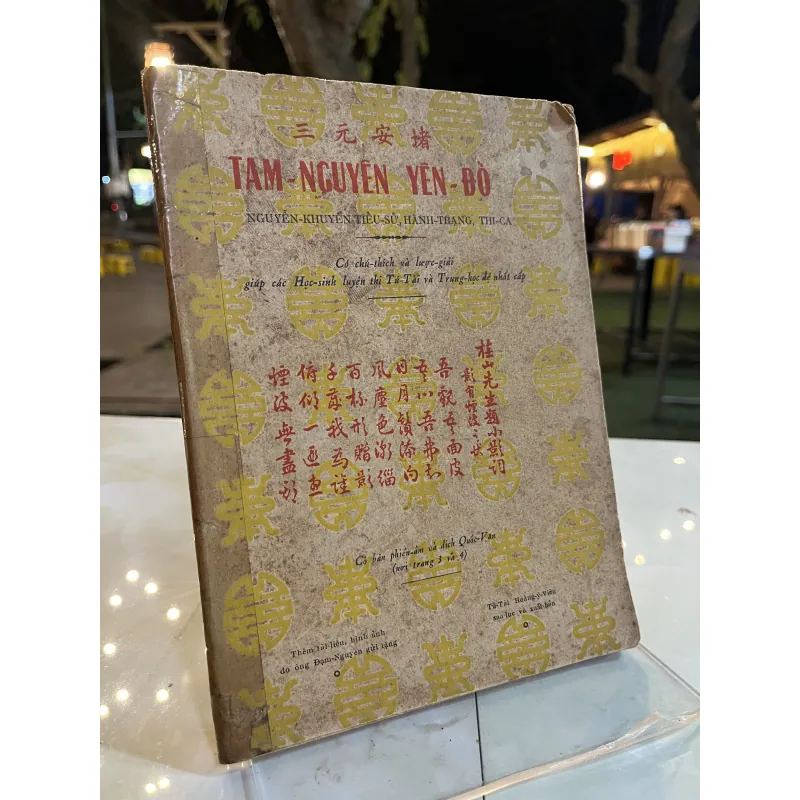 三元安堵
TAM-NGUYÊN YÊN-ĐỔ
NGUYỄN-KHUYẾN TIỂU-SỬ, HÀNH-TRẠNG, THI-CA
Có chú-thích và lược-giải
giúp các Học-sinh luyện thi Tú-Tài và Trung-học đệ nhất cấp
桂山先生題小影詞
吾觀吾面皮
日月鬚添白
風塵色漸緇
百杯形贈影
俯仰一
煙波無盡
Có bản phiên-âm và dịch Quốc-Văn
(nơi trang 3 và 4)
Thêm tài-liệu, hình ảnh
do ông Đạm-Nguyên gửi tặng
Tú-Tài Hoàng-ý-Viên
sao lục và xuất-bản